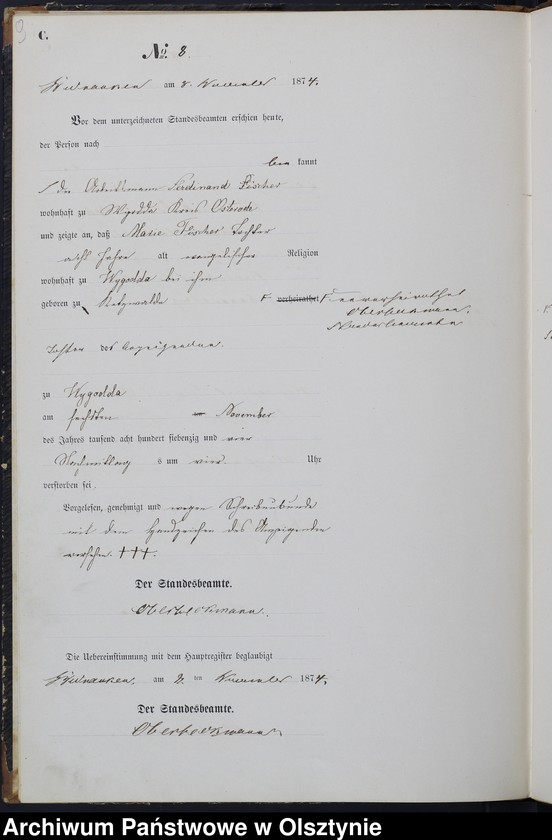 9
C.
No. 8.
am 8. November 1874.
Vor dem unterzeichneten Standesbeamten erschien heute,
der Person nach
be kannt
der Arbeitsmann Ferdinand Fischer
wohnhaft zu Wygodda Kreis Osterode
und zeigte an, daß Marie Fischer Tochter
acht Jahre alt evangelischer Religion
wohnhaft zu Wygodda bei ihm
geboren zu verheirathet F unverheirathet
Standesbeamte
Tochter des Anzeigenden.
zu Wygodda
am sechsten November
des Jahres tausend acht hundert siebenzig und vier
Nachmittag s um vier Uhr
verstorben sei.
Vorgelesen, genehmigt und wegen Schreibunkunde
mit dem Handzeichen des Anzeigenden
versehen. +++.
Der Standesbeamte.
Die Uebereinstimmung mit dem Hauptregister beglaubigt
am ten November 1874.
Der Standesbeamte.
Archiwum Państwowe w Olsztynie